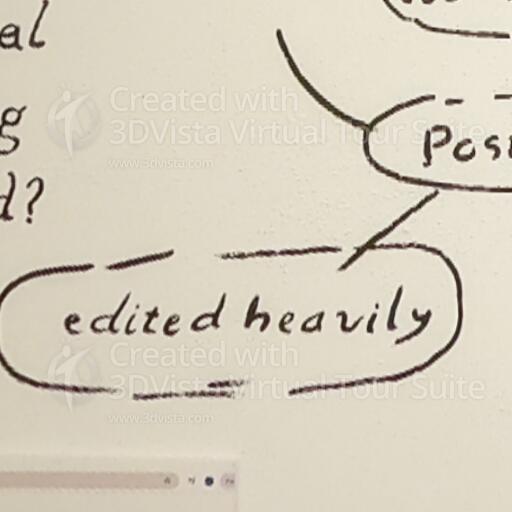 al
g
d?
Posi
edited heavily
Created with
3DVista Virtual Tour Suite
www.3dvista.com
Created with
3DVista Virtual Tour Suite
www.3dvista.com